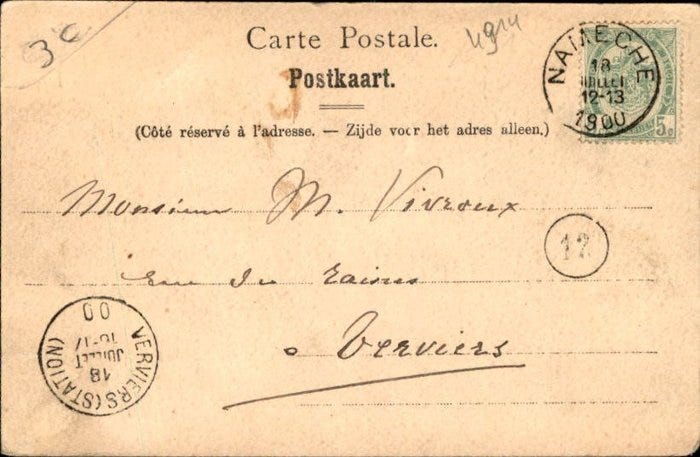 3c
4914
Carte Postale.
Postkaart.
(Côté réservé à l'adresse. — Zijde voor het adres alleen.)
NAMECHE
18
JUILLET
12-13
1900
5c
Monsieur M. Vivroux
17
rue du
à Verviers
VERVIERS (STATION)
18
JUILLET
16-17
00